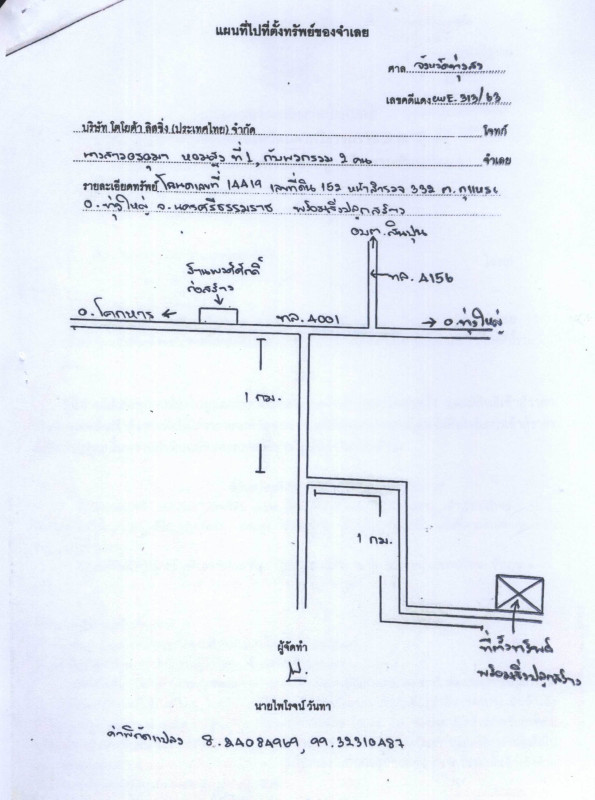 แผนที่ไปที่ตั้งทรัพย์ของจำเลย
ศาล จังหวัดทุ่งสง
เลขคดีแดง ผบE. 313/63
บริษัท โตโยต้า ลิสซิ่ง (ประเทศไทย) จำกัด โจทก์
นางสาวอรอุมา หอมสู ที่ 1, กับพวกรวม 2 คน จำเลย
รายละเอียดทรัพย์ โฉนดเลขที่ 14419 เลขที่ดิน 152 หน้าสำรวจ 332 ต. กุแหระ
อ. ทุ่งใหญ่ จ. นครศรีธรรมราช พร้อมสิ่งปลูกสร้าง
อบต. สินปุน
ทล. 4156
ร้านพงศ์ศักดิ์
ก่อสร้าง
อ. โคกหาร ←
ทล. 4001
→ อ. ทุ่งใหญ่
1 กม.
1 กม.
ที่ตั้งทรัพย์
พร้อมสิ่งปลูกสร้าง
ผู้จัดทำ
นายไพโรจน์ วันทา
ค่าพิกัดแปลง 8.24084969, 99.32310487